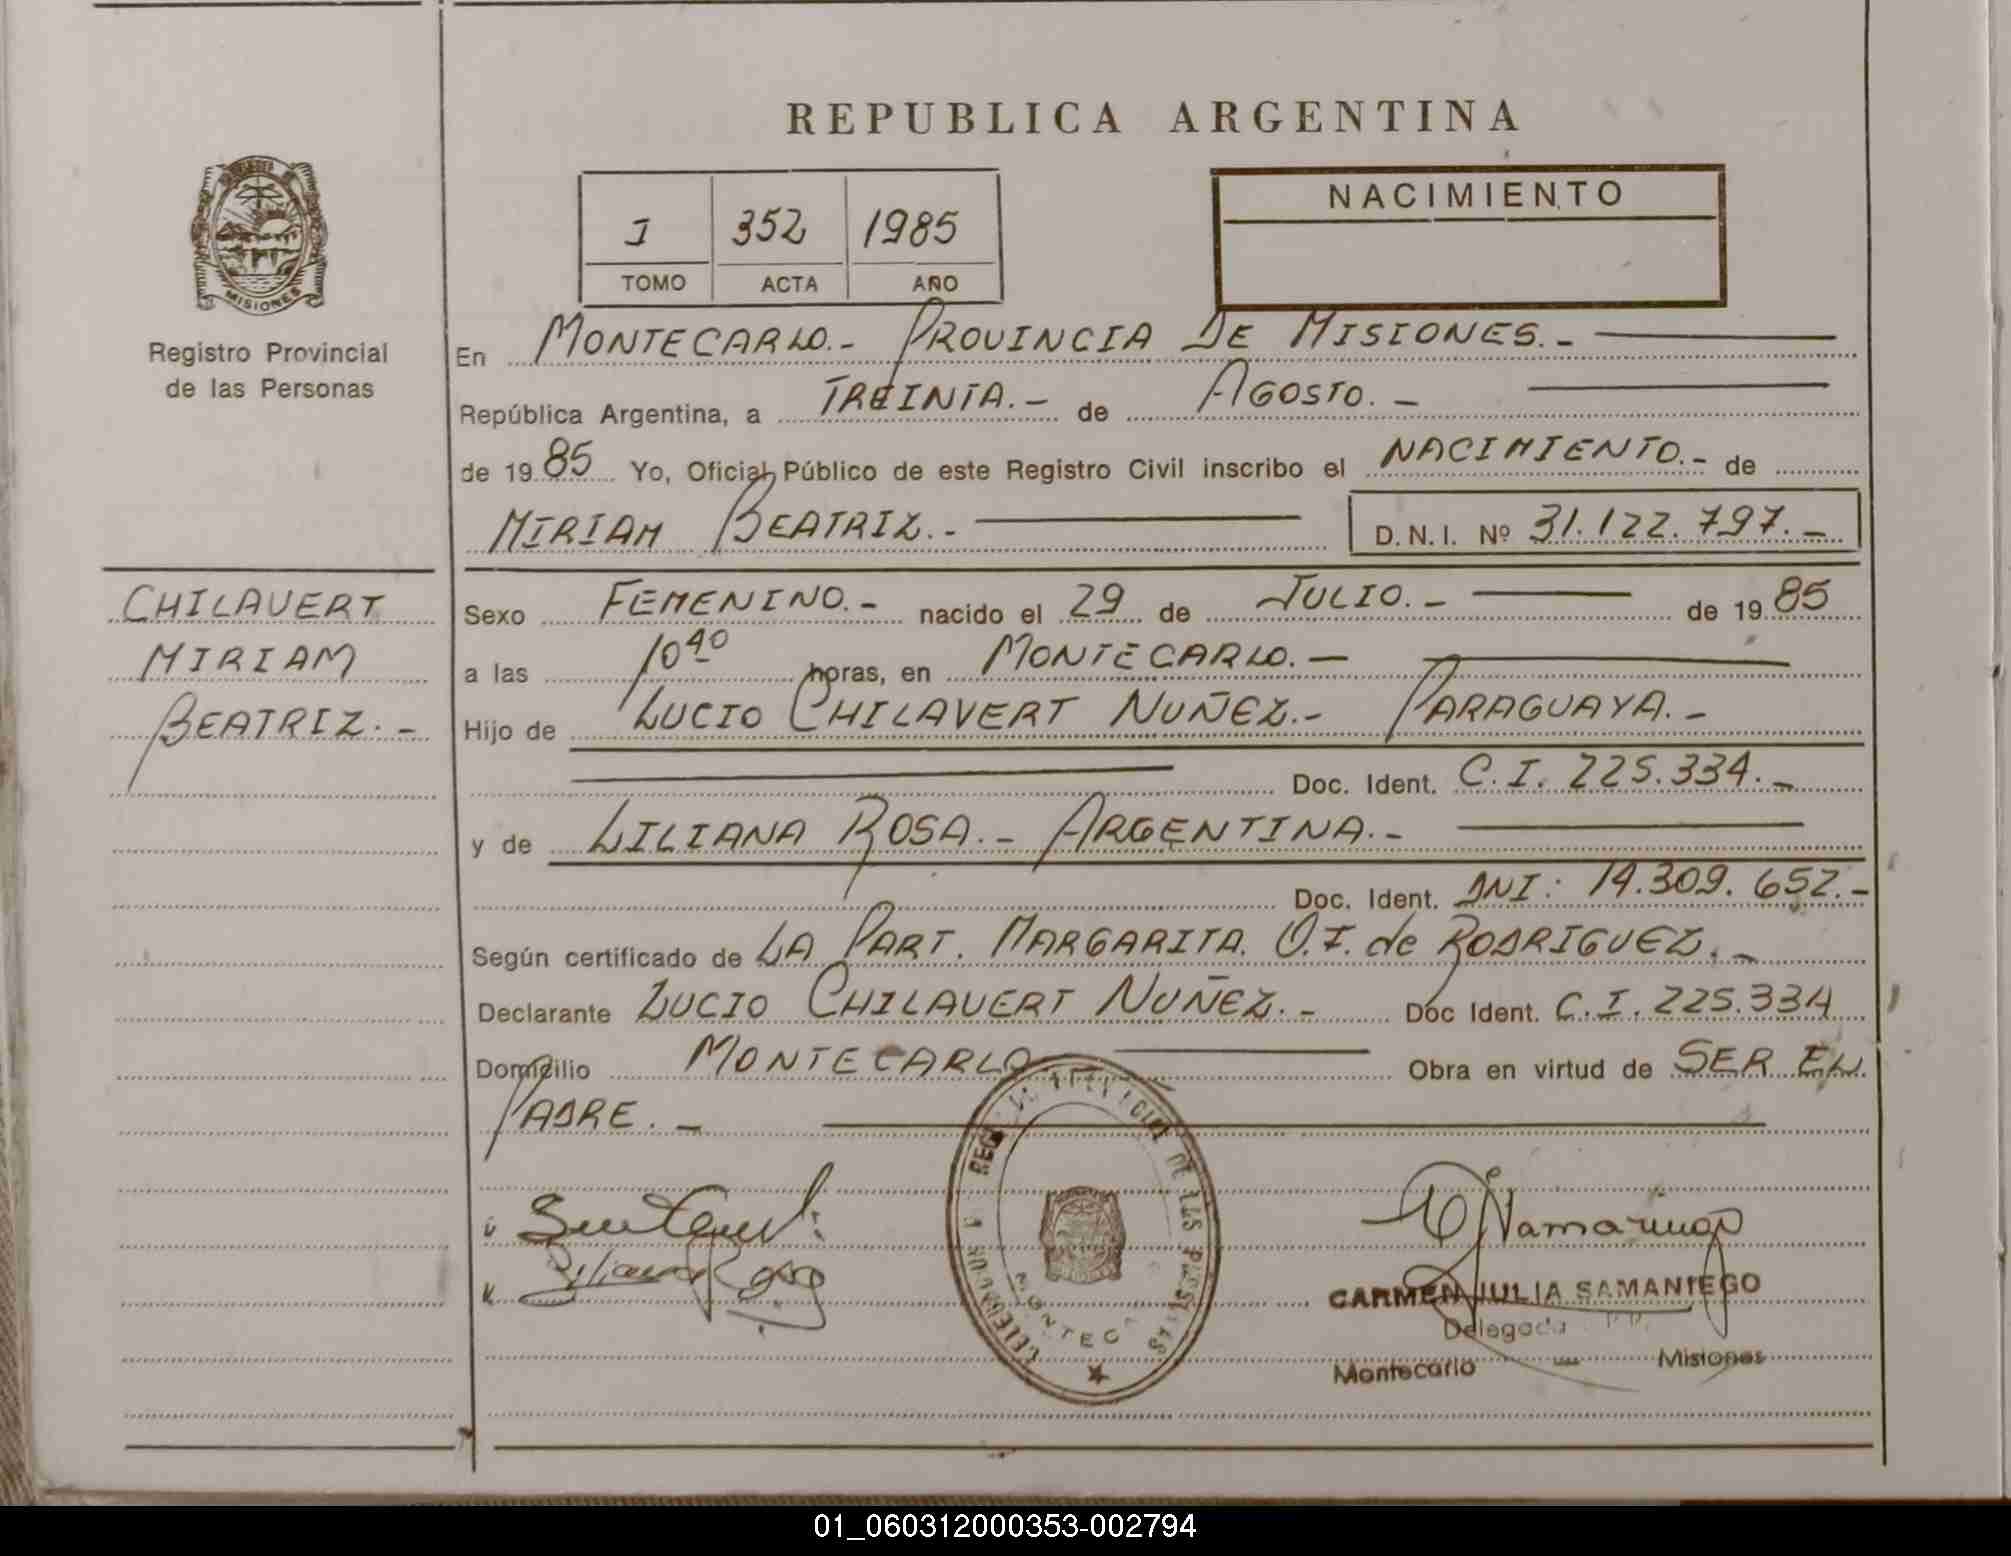 REPUBLICA ARGENTINA
1 352 1985
TOMO ACTA AÑO
NACIMIENTO
MISIONES
Registro Provincial
de las Personas
CHILAVERT
MIRIAM
BEATRIZ.-
En MONTECARLO.- PROVINCIA DE MISIONES.-
República Argentina, a TREINTA.- de AGOSTO.-
de 1985 Yo, Oficial Público de este Registro Civil inscribo el NACIMIENTO.- de
MIRIAM BEATRIZ.- D.N.I. Nº 31.122.797.-
Sexo FEMENINO.- nacido el 29 de JULIO.- de 1985
a las 10 40 horas, en MONTECARLO.-
Hijo de LUCIO CHILAVERT NUÑEZ.- PARAGUAYA.-
Doc. Ident. C.I. 225.334.-
y de LILIANA ROSA.- ARGENTINA.-
Doc. Ident. DNI: 14.309.652.-
Según certificado de LA PART. MARGARITA. O.F. de RODRIGUEZ.-
Declarante LUCIO CHILAVERT NUÑEZ.- Doc Ident. C.I. 225.334
Domicilio MONTECARLO Obra en virtud de SER EL
PADRE.-
Liliana Rosa
CARMEN JULIA SAMANIEGO
Delegada
Montecarlo Misiones
01_060312000353-002794